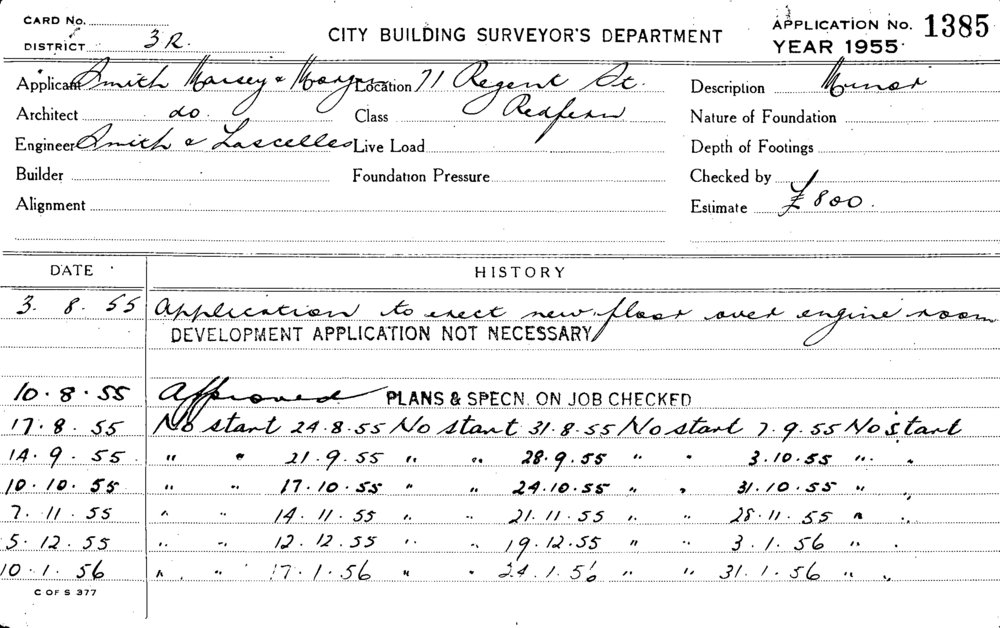 CARD No.
DISTRICT 3R.
CITY BUILDING SURVEYOR'S DEPARTMENT
APPLICATION No. 1385
YEAR 1955
Applicant Smith Massey & Location 71 Regent St. Description Minor
Architect do. Class Redfern Nature of Foundation
Engineer Smith & Lascelles Live Load Depth of Footings
Builder Foundation Pressure Checked by
Alignment Estimate £800.
DATE HISTORY
3. 8. 55 Application to erect new floor over engine room
DEVELOPMENT APPLICATION NOT NECESSARY
10. 8. 55 Approved PLANS & SPECN. ON JOB CHECKED
17. 8. 55 No start 24.8.55 No start 31.8.55 No start 7.9.55 No start
14. 9. 55 " " 21.9.55 " " 28.9.55 " " 3.10.55 " "
10. 10. 55 " " 17.10.55 " " 24.10.55 " " 31.10.55 " "
7. 11. 55 " " 14.11.55 " " 21.11.55 " " 28.11.55 " "
5. 12. 55 " " 12.12.55 " " 19.12.55 " " 3.1.56 " "
10. 1. 56 " " 17.1.56 " " 24.1.56 " " 31.1.56 " "
C OF S 377